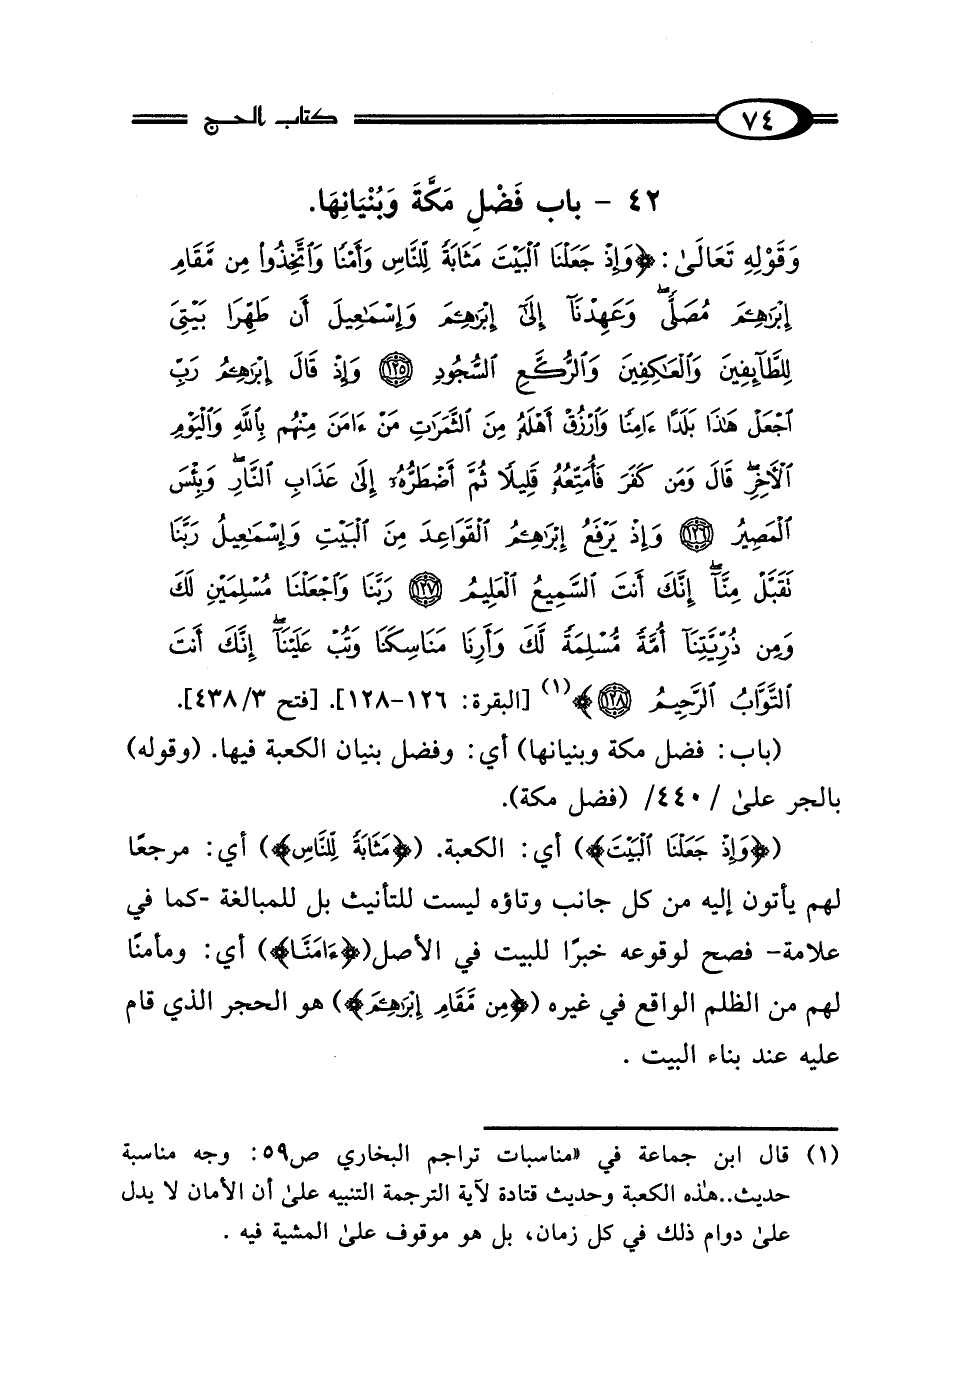 ٧٤ كتاب الحج
٤٢ - باب فَضْلِ مَكَّةَ وَبُنْيَانِهَا.
وَقَوْلِهِ تَعَالَىٰ: ﴿وَإِذْ جَعَلْنَا ٱلْبَيْتَ مَثَابَةً لِّلنَّاسِ وَأَمْنًا وَٱتَّخِذُوا۟ مِن مَّقَامِ
إِبْرَٰهِـۧمَ مُصَلًّى ۖ وَعَهِدْنَآ إِلَىٰٓ إِبْرَٰهِـۧمَ وَإِسْمَـٰعِيلَ أَن طَهِّرَا بَيْتِىَ
لِلطَّآئِفِينَ وَٱلْعَـٰكِفِينَ وَٱلرُّكَّعِ ٱلسُّجُودِ ﴿١٢٥﴾ وَإِذْ قَالَ إِبْرَٰهِـۧمُ رَبِّ
ٱجْعَلْ هَـٰذَا بَلَدًا ءَامِنًا وَٱرْزُقْ أَهْلَهُۥ مِنَ ٱلثَّمَرَٰتِ مَنْ ءَامَنَ مِنْهُم بِٱللَّهِ وَٱلْيَوْمِ
ٱلْـَٔاخِرِ ۖ قَالَ وَمَن كَفَرَ فَأُمَتِّعُهُۥ قَلِيلًا ثُمَّ أَضْطَرُّهُۥٓ إِلَىٰ عَذَابِ ٱلنَّارِ ۖ وَبِئْسَ
ٱلْمَصِيرُ ﴿١٢٦﴾ وَإِذْ يَرْفَعُ إِبْرَٰهِـۧمُ ٱلْقَوَاعِدَ مِنَ ٱلْبَيْتِ وَإِسْمَـٰعِيلُ رَبَّنَا
تَقَبَّلْ مِنَّآ ۖ إِنَّكَ أَنتَ ٱلسَّمِيعُ ٱلْعَلِيمُ ﴿١٢٧﴾ رَبَّنَا وَٱجْعَلْنَا مُسْلِمَيْنِ لَكَ
وَمِن ذُرِّيَّتِنَآ أُمَّةً مُّسْلِمَةً لَّكَ وَأَرِنَا مَنَاسِكَنَا وَتُبْ عَلَيْنَآ ۖ إِنَّكَ أَنتَ
ٱلتَّوَّابُ ٱلرَّحِيمُ ﴿١٢٨﴾﴾(١) [البقرة: ١٢٦-١٢٨]. [فتح ٣/٤٣٨].
(باب: فضل مكة وبنيانها) أي: وفضل بنيان الكعبة فيها. (وقوله)
بالجر علىٰ /٤٤٠/ (فضل مكة).
(﴿وَإِذْ جَعَلْنَا ٱلْبَيْتَ﴾) أي: الكعبة. (﴿مَثَابَةً لِّلنَّاسِ﴾) أي: مرجعًا
لهم يأتون إليه من كل جانب وتاؤه ليست للتأنيث بل للمبالغة -كما في
علامة- فصح لوقوعه خبرًا للبيت في الأصل(﴿ءَامَنَّا﴾) أي: ومأمنًا
لهم من الظلم الواقع في غيره (﴿مِن مَّقَامِ إِبْرَٰهِـۧمَ﴾) هو الحجر الذي قام
عليه عند بناء البيت .
(١) قال ابن جماعة في «مناسبات تراجم البخاري ص٥٩: وجه مناسبة
حديث..هٰذه الكعبة وحديث قتادة لآية الترجمة التنبيه علىٰ أن الأمان لا يدل
علىٰ دوام ذلك في كل زمان، بل هو موقوف علىٰ المشية فيه .